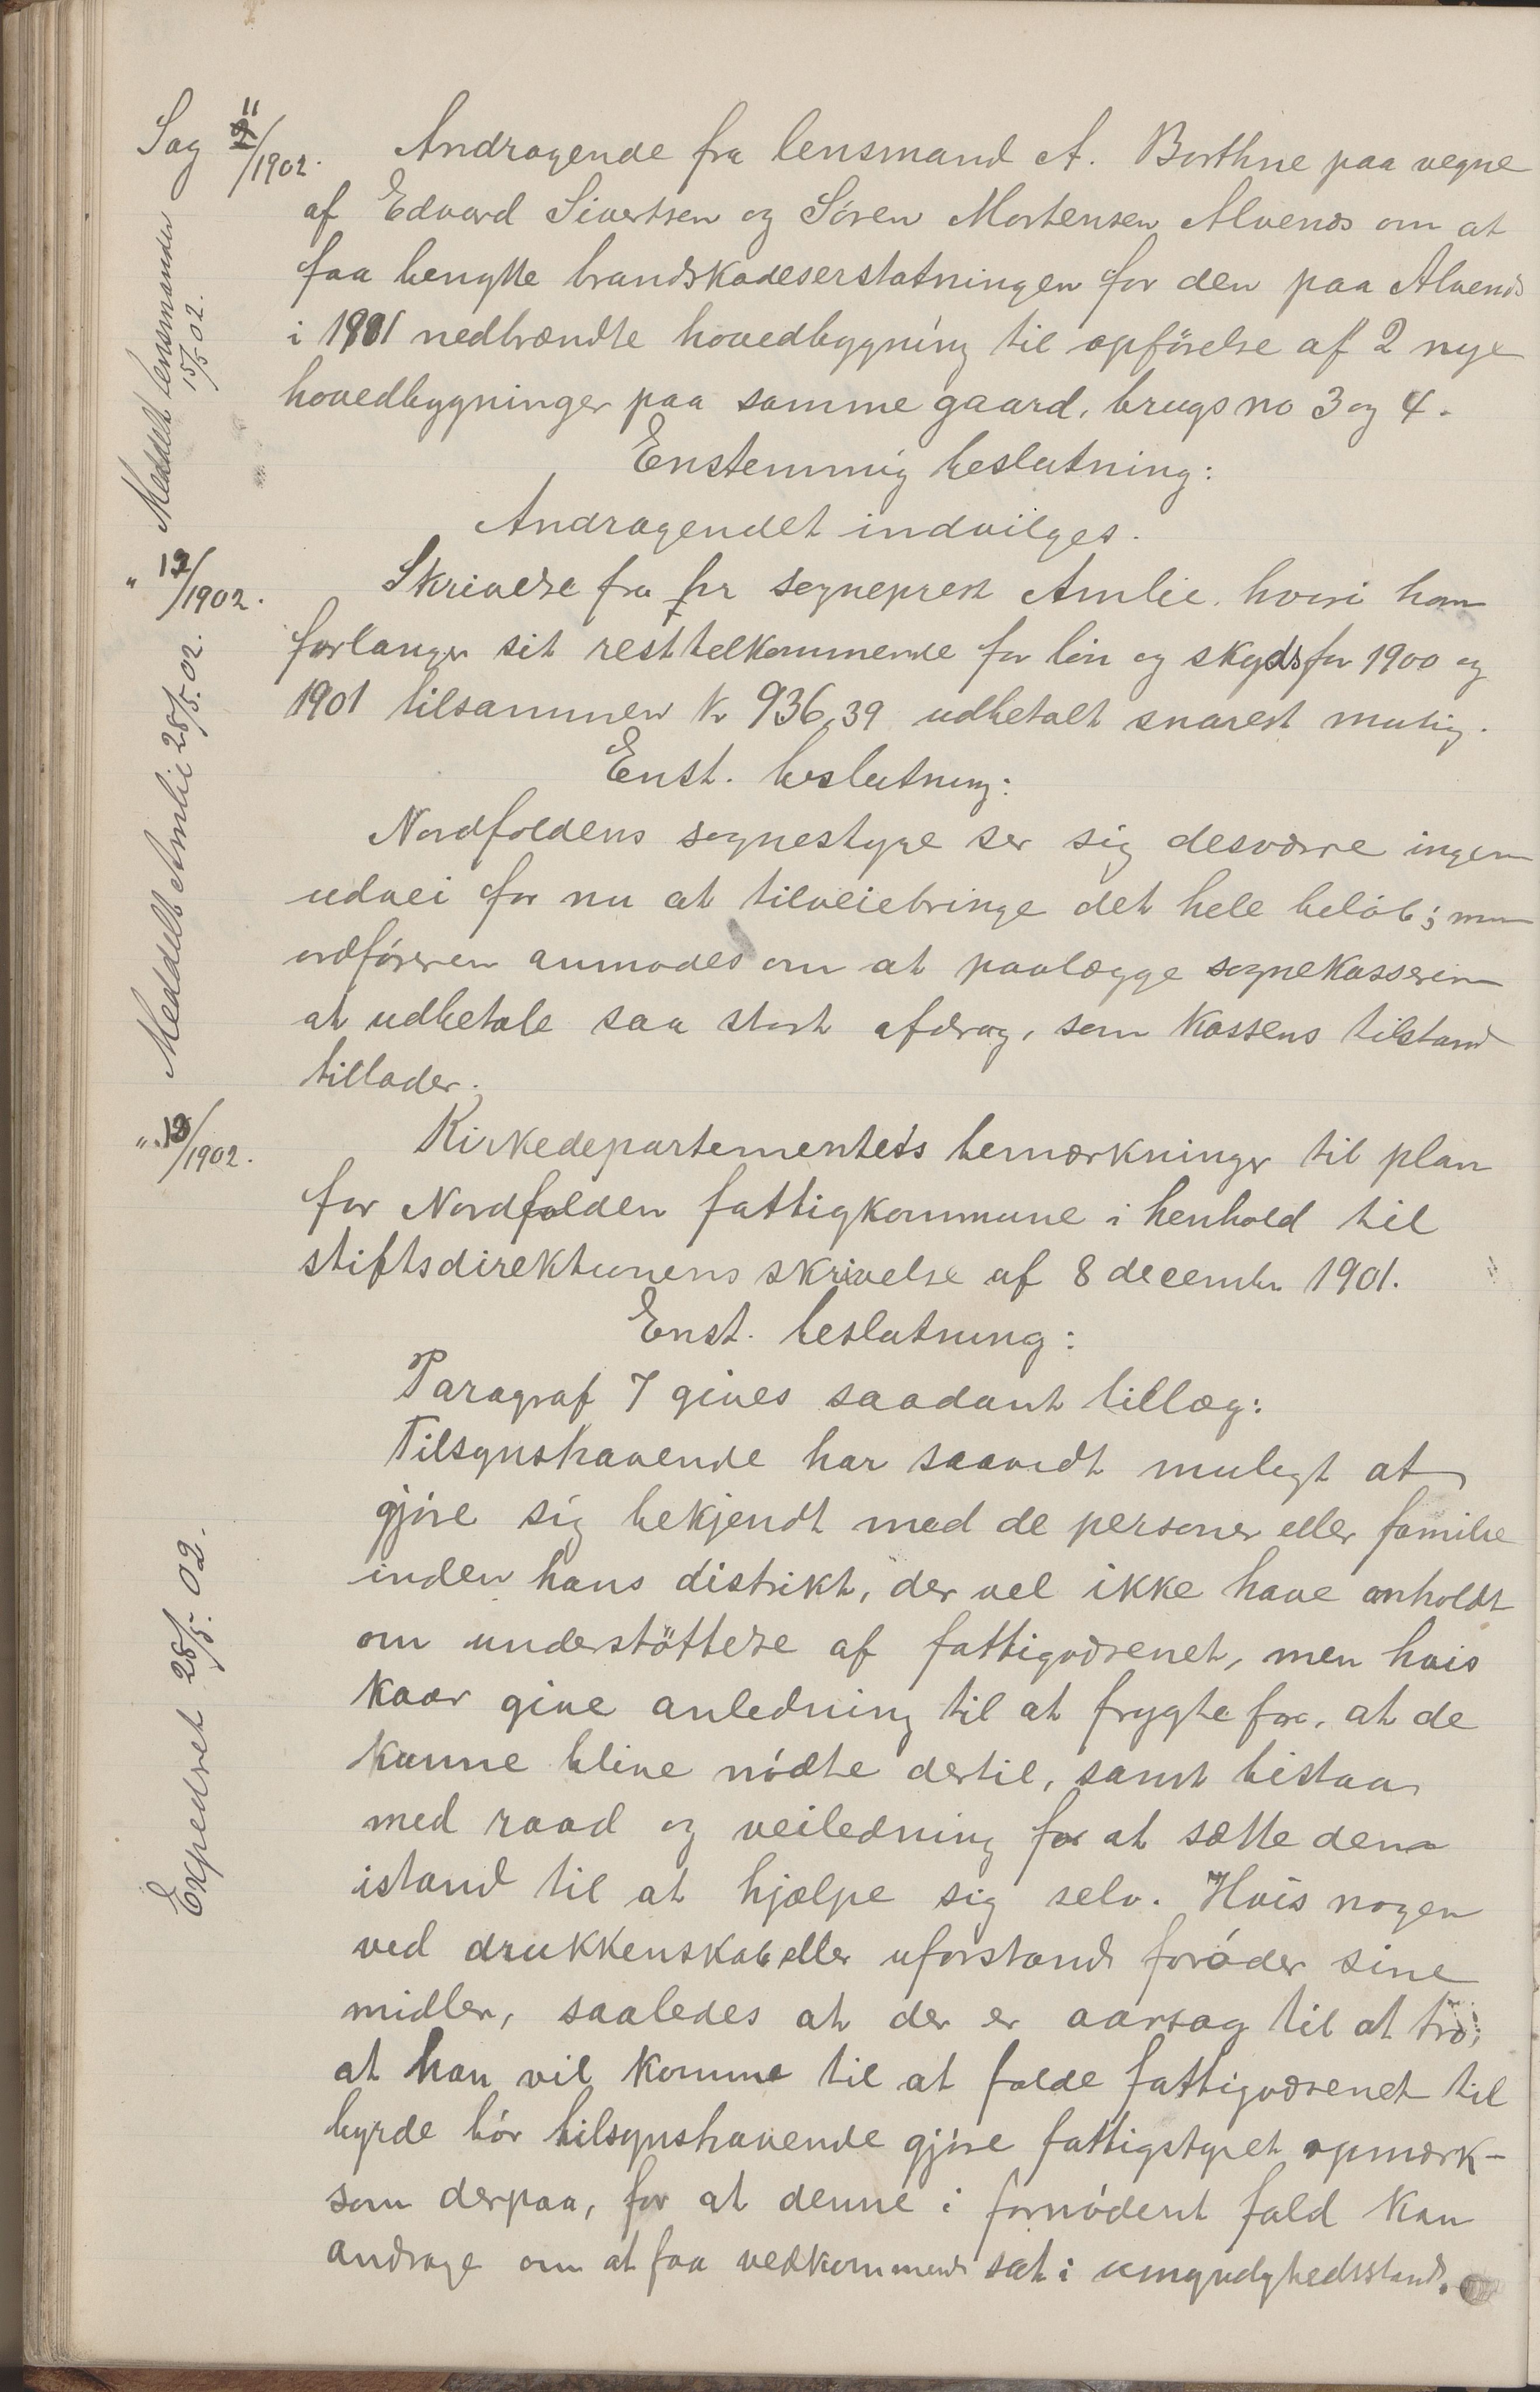 Sag 11/1902.
Andragende fra lensmand A. Borthne paa vegne
af Edvard Sivertsen og Sören Mortensen Alvenes om at
faa benytte brandskadeserstatningen for den paa Alvenes
i 1901 nedbrændte hovedbygning til opförelse af 2 nye
hovedbygninger paa samme gaard, brugs no 3 og 4.
Enstemmig beslutning:
Andragendet indvilges.
Meddelt lensmanden 15/5 02.
" 12/1902.
Skrivelse fra hr sogneprest Amlie, hvori han
forlanger sit resttilkommende for lön og skyds for 1900 og
1901 tilsammen kr 936,39 udbetalt snarest mulig.
Enst. beslutning:
Nordfoldens sognestyre ser sig desværre ingen
udvei for nu at tilveiebringe det hele belöb; men
ordföreren anmodes om at paalægge sognekassereren
at udbetale saa stort afdrag, som kassens tilstand
tillader.
Meddelt Amlie 28/5. 02.
" 13/1902.
Kirkedepartementets bemærkninger til plan
for Nordfolden fattigkommune i henhold til
stiftsdirektionens skrivelse af 8 decembr 1901.
Enst. beslutning:
Paragraf 7 gives saadant tillæg:
Tilsynshavende har saavidt muligt at
gjöre sig bekjendt med de personer eller familie
inden hans distrikt, der vel ikke have anholdt
om understöttelse af fattigvæsenet, men hvis
kaar give anledning til at frygte for, at de
kunne blive nödte dertil, samt bistaa
med raad og veiledning for at sætte dem
istand til at hjælpe sig selv. Hvis nogen
ved drukkenskab eller uforstand foröder sine
midler, saaledes at der er aarsag til at tro,
at han vil komme til at falde fattigvæsenet til
byrde bör tilsynshavende gjöre fattigstyret opmærk-
som derpaa, for at denne i fornödent fald kan
andrage om at faa vedkommende sat i umyndighedsstand.
Expedret 28/5. 02.